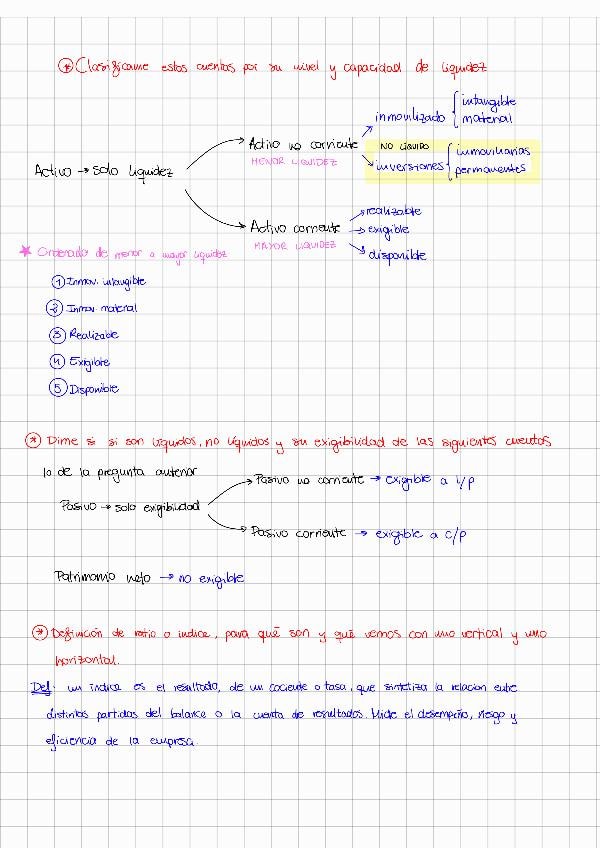 * Clasifícame estas cuentas por su nivel y capacidad de liquidez
Activo → solo liquidez
Activo no corriente
MENOR LIQUIDEZ
inmovilizado { intangible
material
NO LÍQUIDO
inversiones { inmoviliarias
permanentes
Activo corriente
MAYOR LIQUIDEZ
→ realizable
→ exigible
→ disponible
★ Ordenado de menor a mayor liquidez
① Inmov. intangible
② Inmov. material
③ Realizable
④ Exigible
⑤ Disponible
* Dime si si son líquidos, no líquidos y su exigibilidad de las siguientes cuentas
lo de la pregunta anterior
Pasivo → solo exigibilidad
Pasivo no corriente → exigible a l/p
Pasivo corriente → exigible a c/p
Patrimonio neto → no exigible
* Definición de ratio o indice, para qué son y qué vemos con uno vertical y uno
horizontal.
Def: un índice es el resultado, de un cociente o tasa, que sintetiza la relacion entre
distintas partidas del balance o la cuenta de resultados. Mide el desempeño, riesgo y
eficiencia de la empresa.